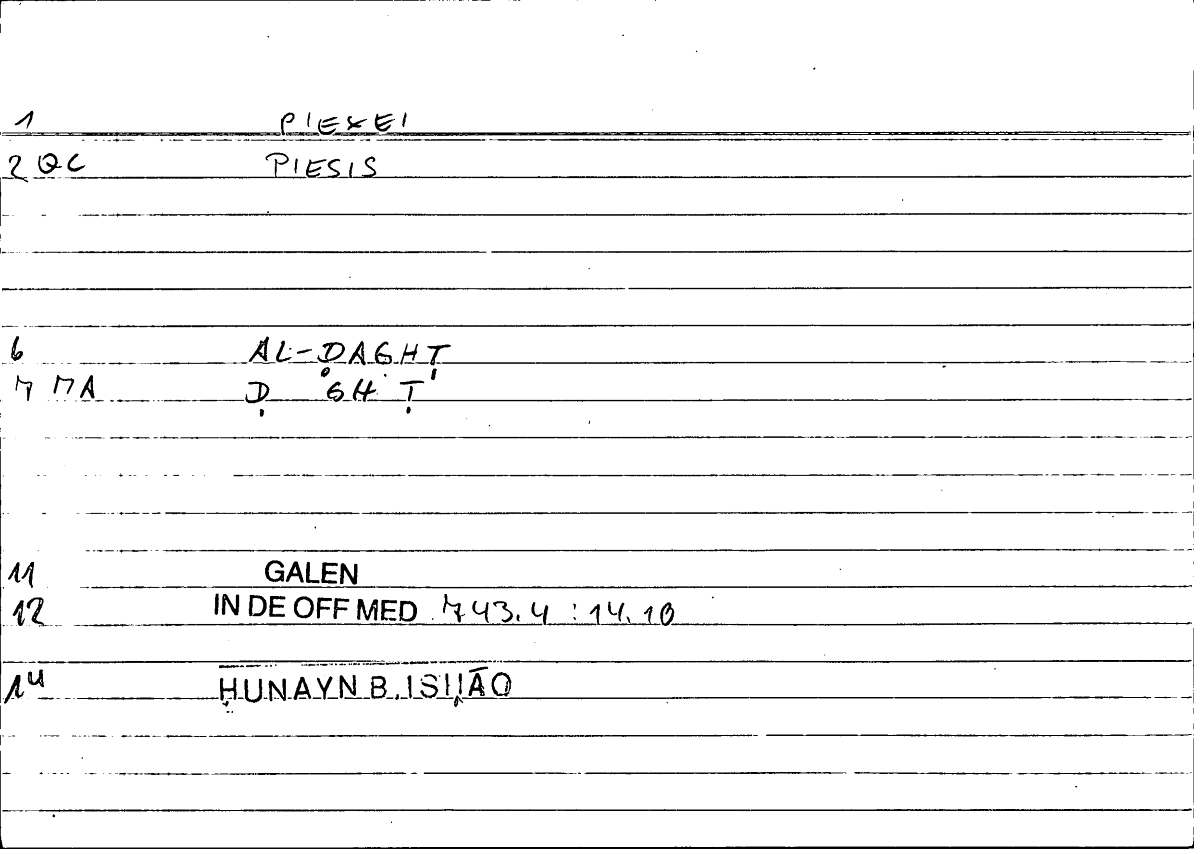 1 PIEXEI
2 QC PIESIS
6 AL-ḌAGHṬ
7 MA Ḍ GH Ṭ
11 GALEN
12 IN DE OFF MED 743.4 : 14.10
14 ḤUNAYN B. ISḤĀQ